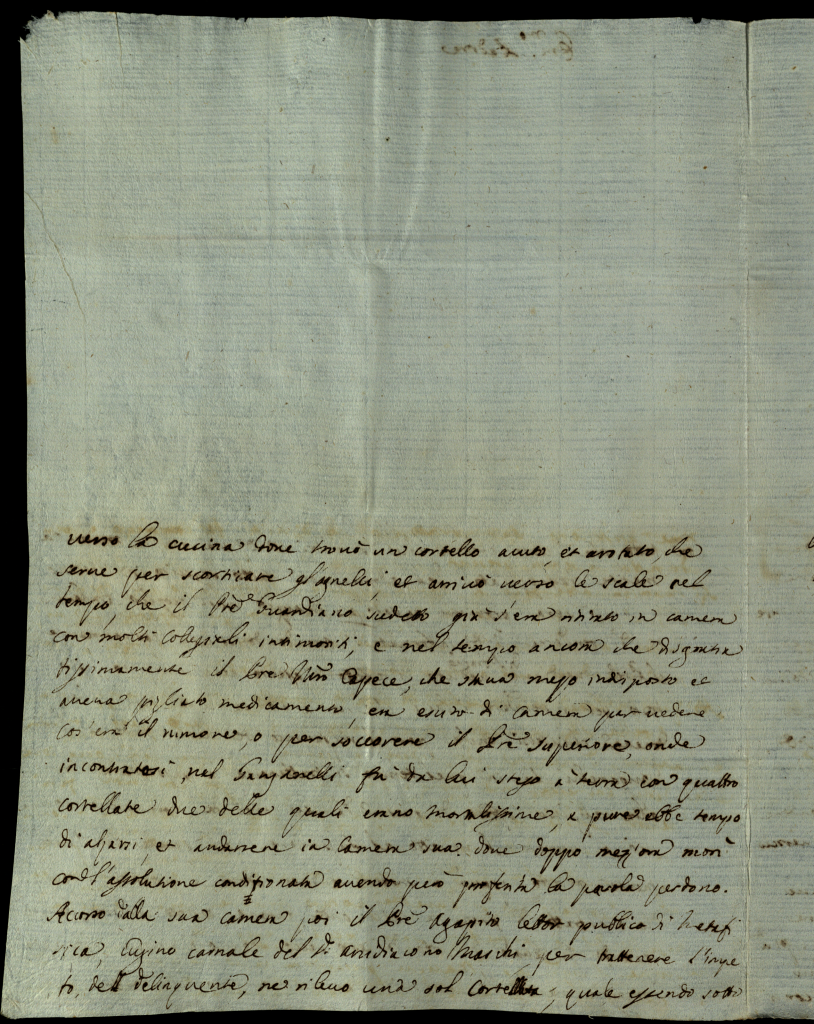 verso la cucina dove trovò un cortello acuto, et arotato, che
serve per scorticare gl'agnelli, et arrivò verso le scale nel
tempo, che il Pre Guardiano sudetto già s'era ritirato in camera
con molti collegiali intimoriti, e nel tempo ancora che disgratia
tissimamente il Pre Capece, che stava mezo indisposto et
aveva pigliato medicamento, era escito di camera per vedere
cos'era il rumore, o per soccorere il Pre superiore, onde
incontratosi nel Ganganelli fù da lui steso a terra con quattro
cortellate due delle quali erano mortalissime, e pure ebbe tempo
di alzarsi, et andarsene in camera sua dove doppo mez'ora morì
con l'assolutione conditionata avendo però proferita la parola perdono.
Accorso dalla sua camera poi il Pre Agapito lettor publico di Metafi
sica, cugino carnale del Sr arcidiacono Maschi, per trattenere l'impe
to, del delinquente, ne rilevò una sol cortellata, quale essendo sotto